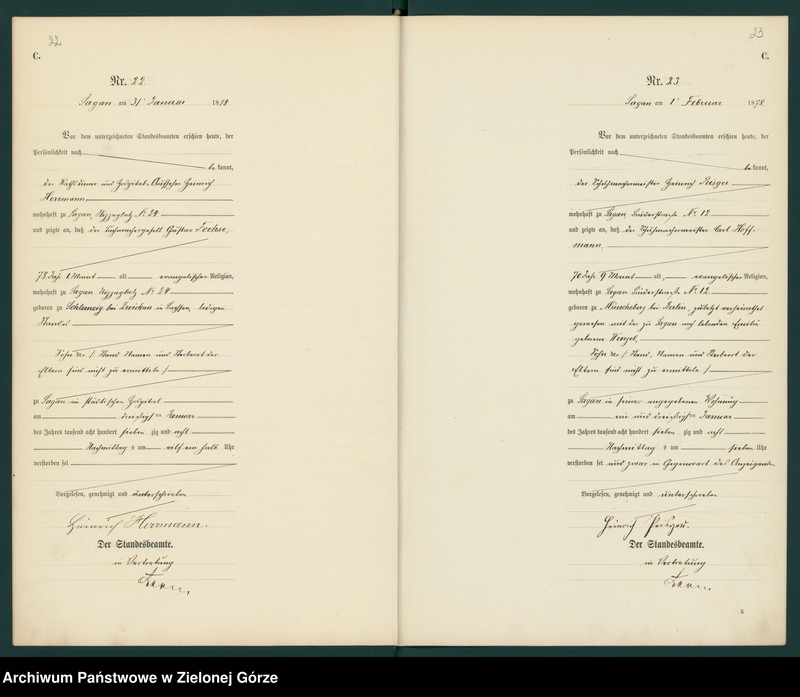 22
C.
Nr. 22
Sagan am 31 Januar 1878
Vor dem unterzeichneten Standesbeamten erschien heute, der
Persönlichkeit nach
be kannt,
der und Hospital-Aufseher Heinrich
Herrmann,
wohnhaft zu Sagan, No 24
und zeigte an, daß der Gustav
78 Jahr 1 Monat alt evangelischer Religion,
wohnhaft zu Sagan No 24
geboren zu bei Zwickau in Sachsen, ledigen
Standes
Sohn der / Stand Namen und Wohnort der
Eltern sind nicht zu ermitteln /
zu Sagan im städtischen Hospital
am dreißigsten Januar
des Jahres tausend acht hundert sieben zig und acht
Nachmittag s um elf ein halb Uhr
verstorben sei
Vorgelesen, genehmigt und unterschrieben
Heinrich Herrmann.
Der Standesbeamte.
in Vertretung
23
C.
Nr. 23
Sagan am 1 Februar 1878.
Vor dem unterzeichneten Standesbeamten erschien heute, der
Persönlichkeit nach
be kannt,
der Schuhmachermeister Heinrich
wohnhaft zu Sagan, No 12
und zeigte an, daß der Schuhmachermeister Carl Hoff-
mann,
70 Jahr 9 Monat alt, evangelischer Religion,
wohnhaft zu Sagan No 12
geboren zu Müncheberg bei Berlin, zuletzt verheirathet
gewesen mit der zu Sagan noch lebenden Emilie
geborene Wenzel,
Sohn der / Stand, Namen und Wohnort der
Eltern sind nicht zu ermitteln /
zu Sagan in seiner angegebenen Wohnung
am ein und dreißigsten Januar
des Jahres tausend acht hundert sieben zig und acht
Nachmittag s um sieben Uhr
verstorben sei und zwar in Gegenwart des Anzeigenden
Vorgelesen, genehmigt und unterschrieben
Heinrich
Der Standesbeamte.
in Vertretung
6
Archiwum Państwowe w Zielonej Górze